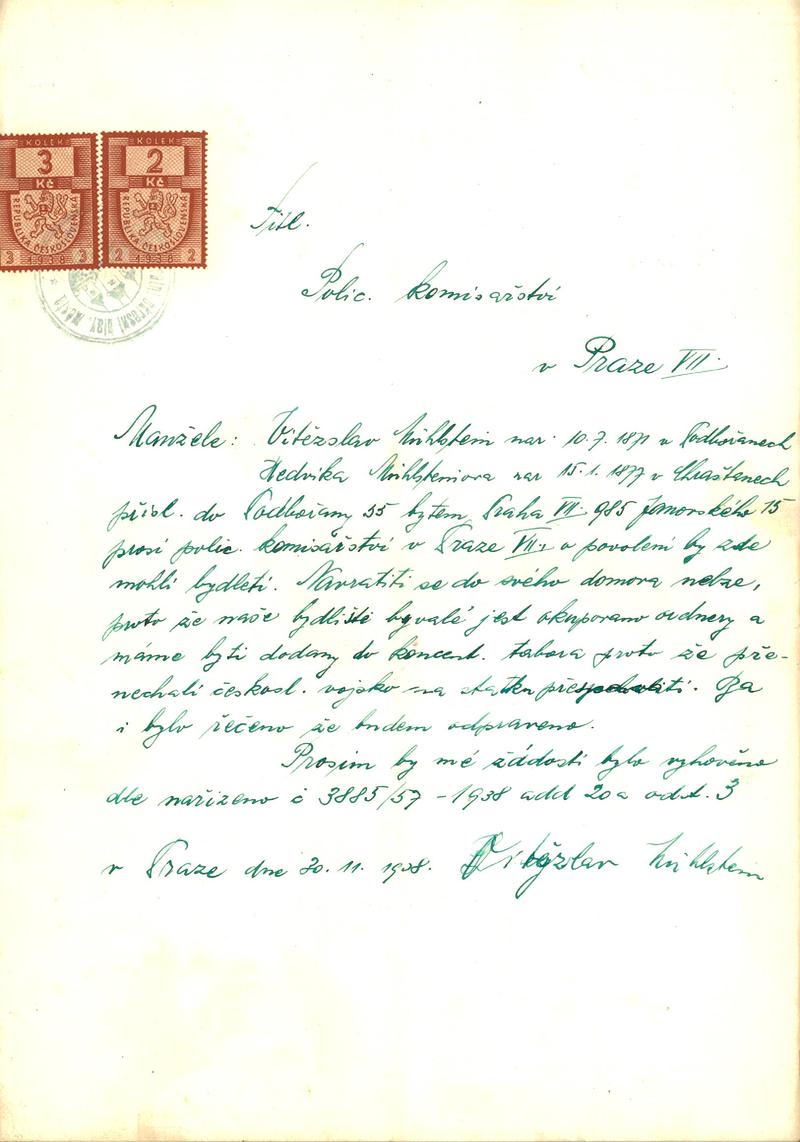 KOLEK KOLEK
3 2
Kč Kč
REPUBLIKA ČESKOSLOVENSKÁ REPUBLIKA ČESKOSLOVENSKÁ
3 1938 3 2 1938 2
Titl.
Polic. komisařství
v Praze VII.
Manžele: Vitězslav Mühlstein nar. 10.7. 1871 v Podbořanech
Hedvika Mühlsteinova nar 15.1. 1877 v Chraštanech
přísl. do Podbořany 55 bytem Praha VII. 985 Janovského 15
prosí polic. komisářství v Praze VII. o povolení by zde
mohli bydleti. Navratiti se do svého domova nelze,
proto že naše bydliště byvalé jest okuporano ordnery a
máme byti dodany do koncent. tabora proto že pře-
nechali českosl. vojsko na statku přespati. Ba
i bylo řečeno že budem odpraveno.
Prosim by mé žádosti bylo vyhověno
dle nařízeno č 3885/57 - 1938 add 20a odd. 3
v Praze dne 30. 11. 1938. Vitězslav Mühlstein